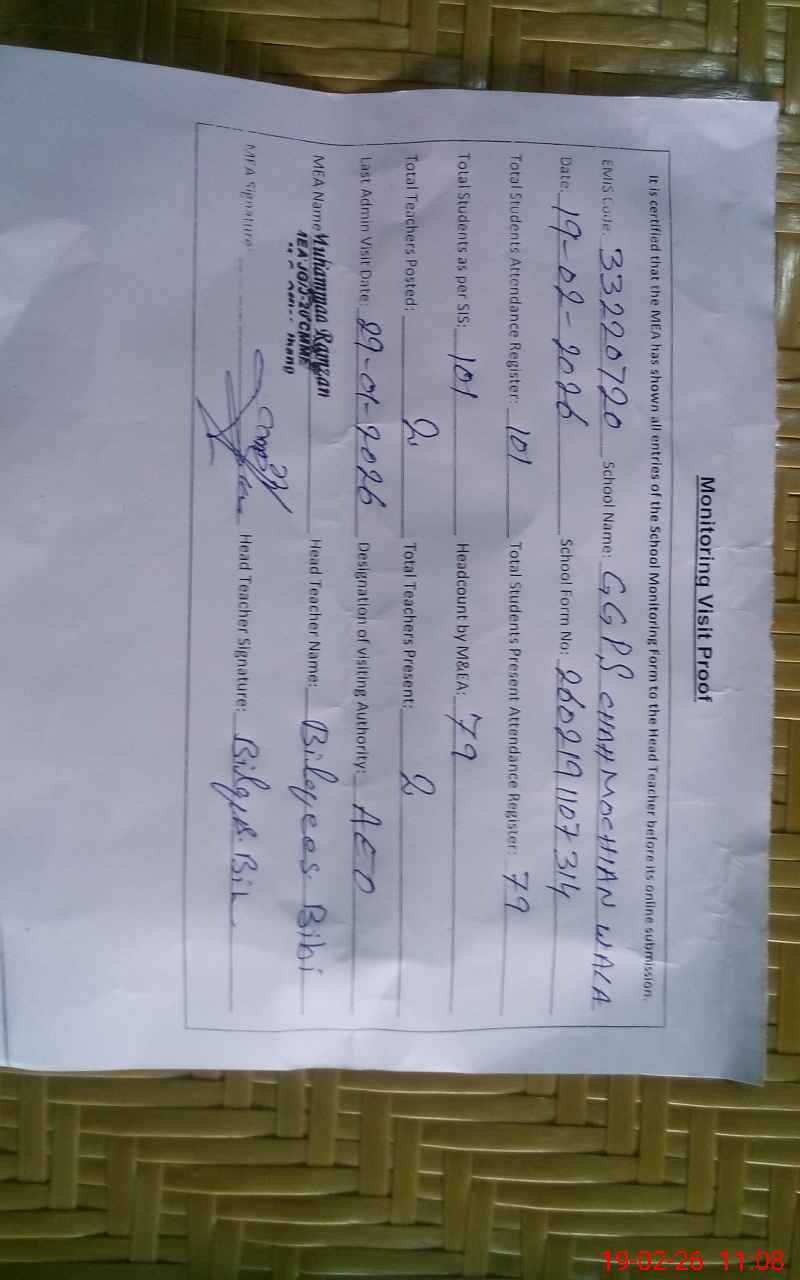 Monitoring Visit Proof
It is certified that the MEA has shown all entries of the School Monitoring Form to the Head Teacher before its online submission.
EMIS Code: 33220720 School Name: GGPS CHAH MOCHIAN WALA
Date: 19-02-2026 School Form No: 260219 1107 314
Total Students Attendance Register: 101 Total Students Present Attendance Register: 79
Total Students as per SIS: 101 Headcount by M&EA: 79
Total Teachers Posted: 2 Total Teachers Present: 2
Last Admin Visit Date: 29-01-2026 Designation of visiting Authority: AEO
MEA Name: Muhammad Ramzan Head Teacher Name: Bilqees Bibi
MEA Signature: Head Teacher Signature: Bilqees Bibi
19-02-26 11:08